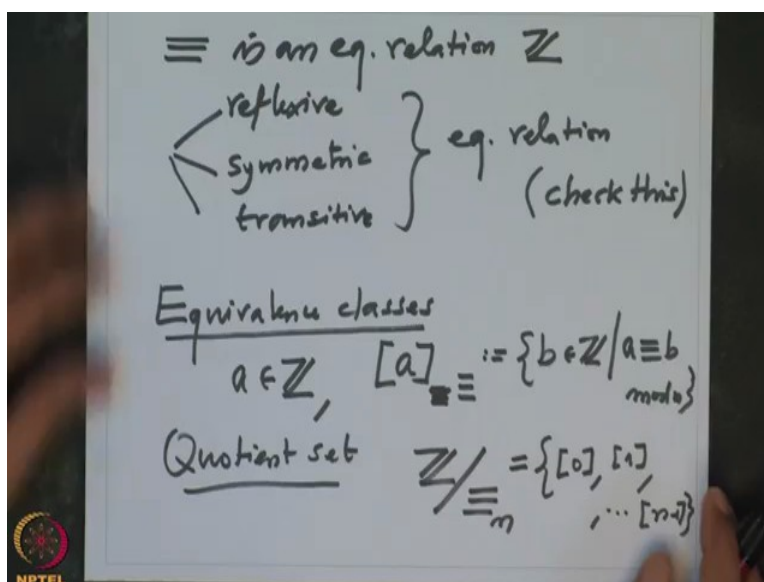 ≡ is an eq. relation ℤ
reflexive
symmetric } eq. relation
transitive (check this)
Equivalence classes
a ∈ ℤ, [a]≡ := {b ∈ ℤ / a ≡ b mod n}
Quotient set ℤ/≡n = {[0], [1],
, ... [n-1]}
NPTEL